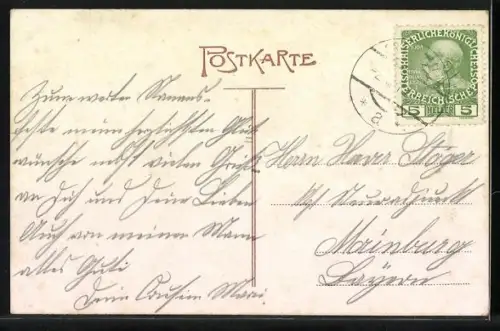 POSTKARTE
KAISERLICHE KÖNIGLICHE ÖSTERREICHISCHE
5 HELLER 5
Zum werten Namens-
feste meine herzlichsten Glück
wünsche nebst vielen Grüßen
an Dich und Deine Lieben
Auch von meinem Mann
alles Gute
Deine Cousine Marie
Herrn Xaver Stöger
Mainburg
Bayern